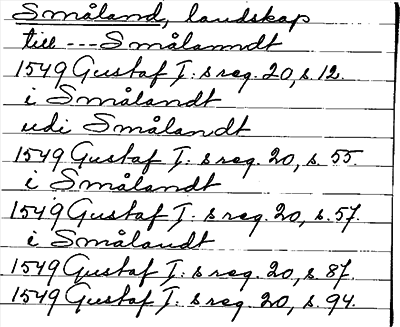 Småland, landskap
till --- Smålanndt
1549 Gustaf I: s reg. 20, s. 12.
i Smålandt
udi Smålandt
1549 Gustaf I: s reg. 20, s. 55.
i Smålandt
1549 Gustaf I: s reg. 20, s. 57.
i Smålandt
1549 Gustaf I: s reg. 20, s. 87.
1549 Gustaf I: s reg. 20, s. 94.